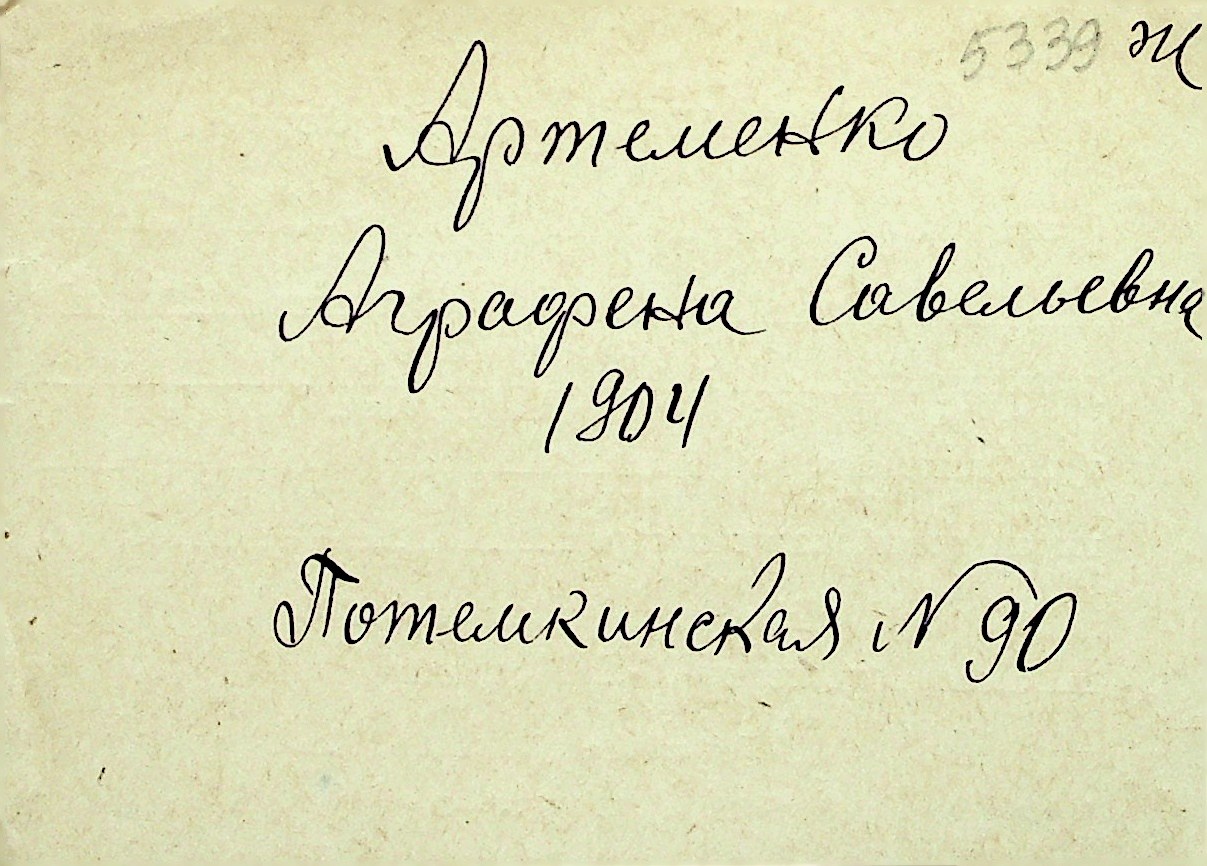 5339 ж
Артеменко
Аграфена Савельевна
1904
Потемкинская N 90